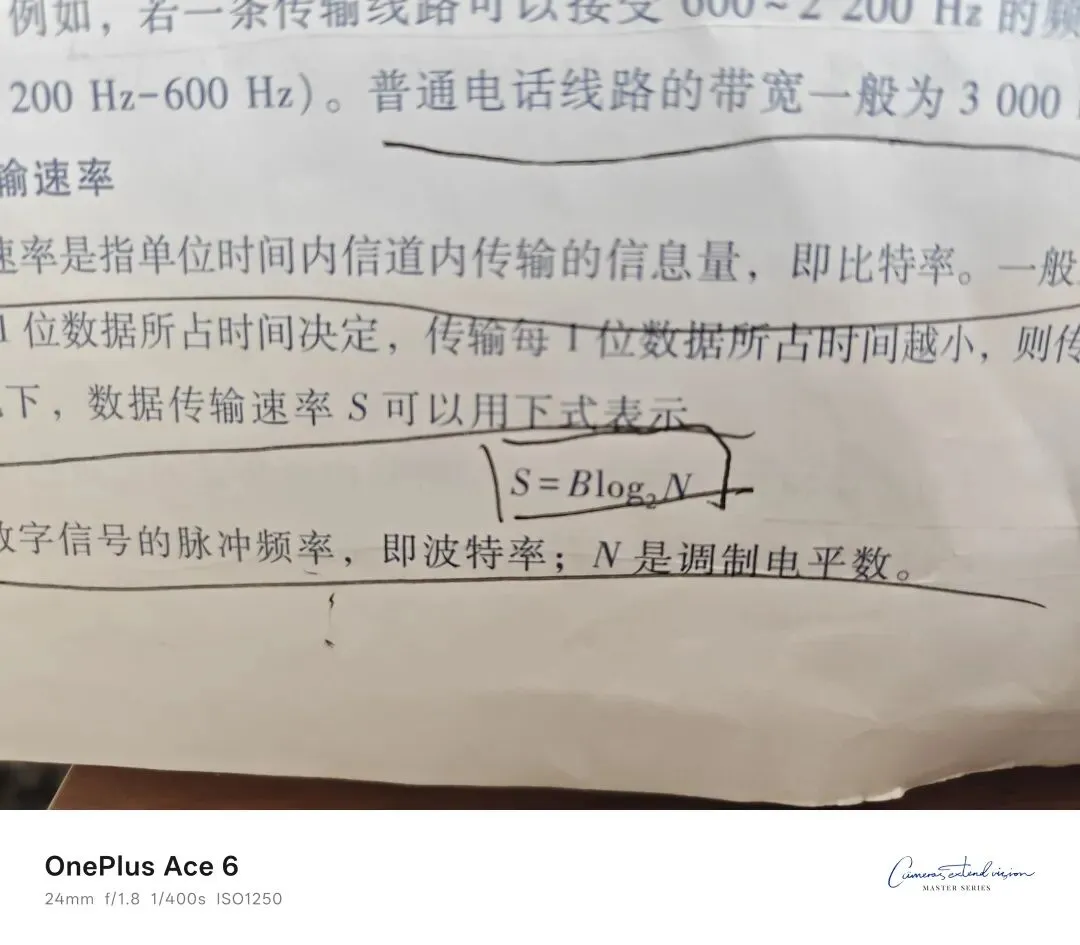 例如，若一条传输线路可以接受 600~2 200 Hz 的频
200 Hz-600 Hz)。普通电话线路的带宽一般为 3 000
输速率
速率是指单位时间内信道内传输的信息量，即比特率。一般
1 位数据所占时间决定，传输每 1 位数据所占时间越小，则传
下，数据传输速率 S 可以用下式表示
S=Blog₂N
数字信号的脉冲频率，即波特率；N 是调制电平数。
OnePlus Ace 6
24mm f/1.8 1/400s ISO1250
Cameras extend vision
MASTER SERIES